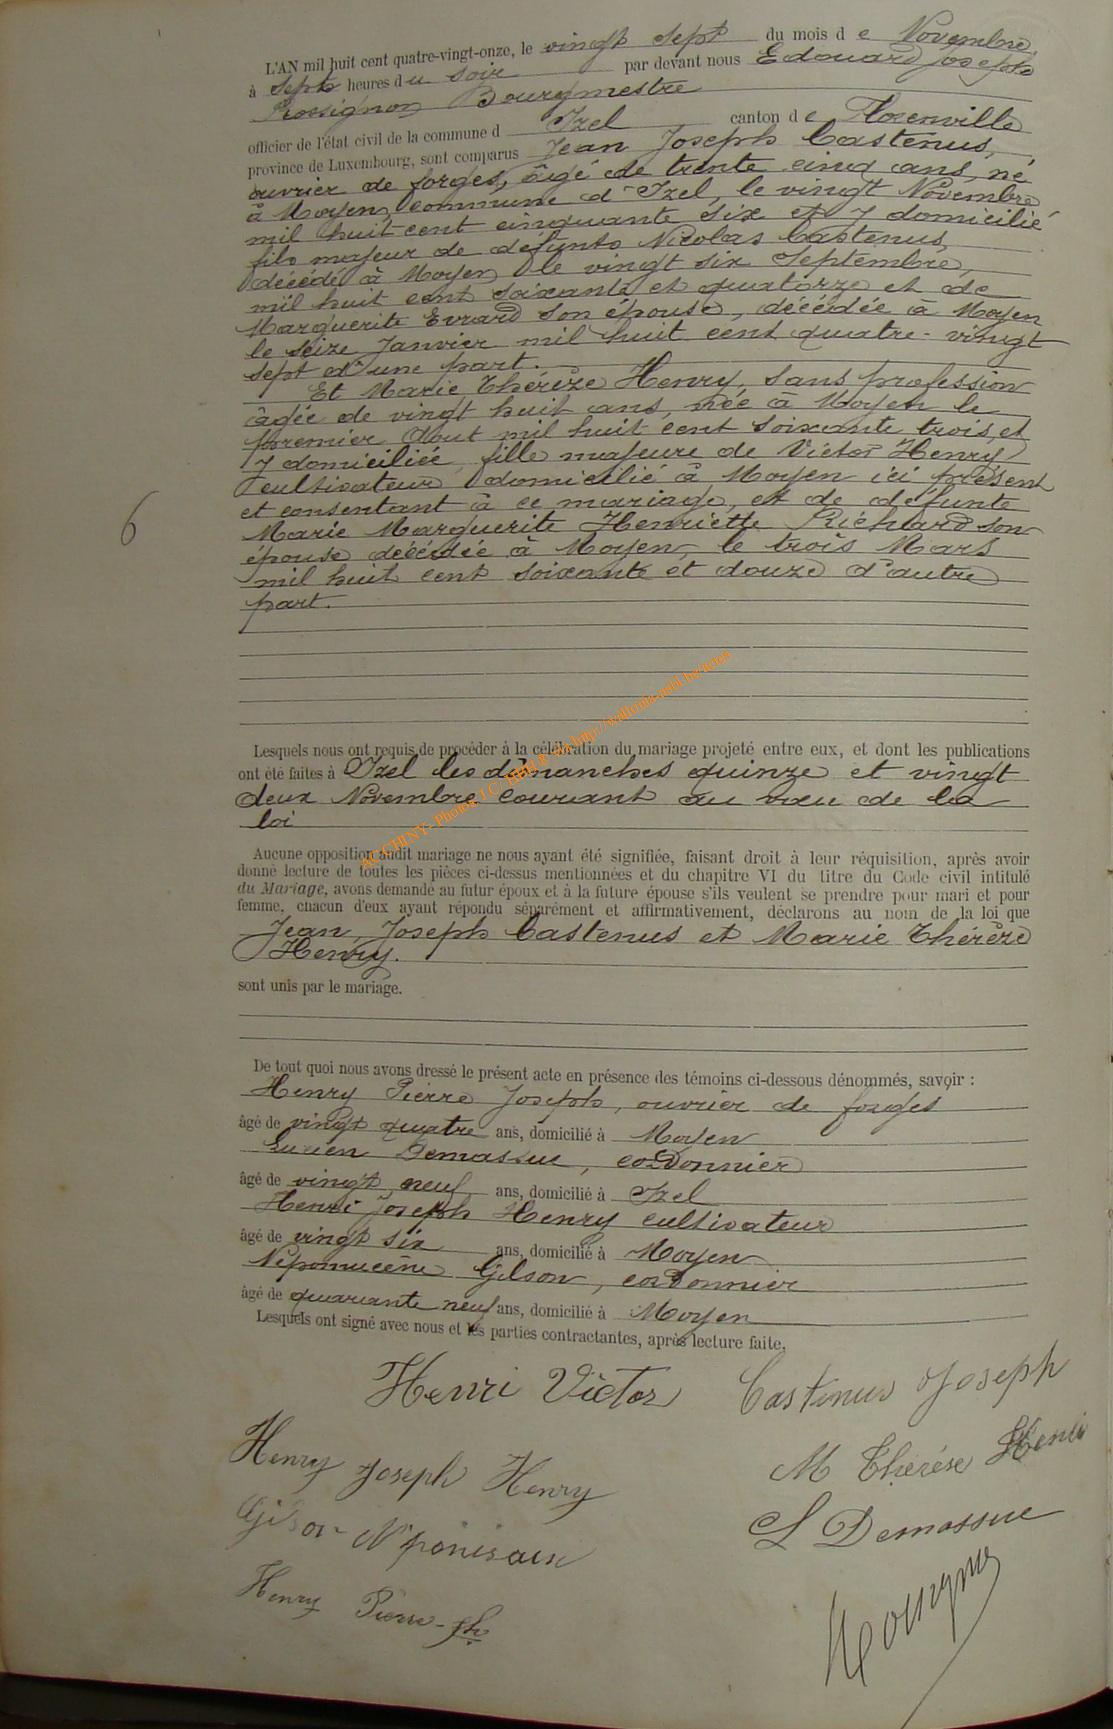 L'AN mil huit cent quatre-vingt-onze, le vingt sept du mois d e Novembre,
à sept heures du soir par devant nous Edouard Joseph
Rossignon Bourgmestre
officier de l'état civil de la commune d Izel canton d e Florenville
province de Luxembourg, sont comparus Jean Joseph Castenus,
ouvrier de forges, âgé de trente cinq ans, né
à Moyen, commune d'Izel, le vingt Novembre
mil huit cent cinquante six et y domicilié
fils majeur de defunts Nicolas Castenus,
décédé à Moyen le vingt six Septembre,
mil huit cent soixante et quatorze et de
Marguerite Evrard son épouse, décédée à Moyen
le seize Janvier mil huit cent quatre-vingt
sept d'une part.
Et Marie Thérèze Henry, sans profession
âgée de vingt huit ans, née à Moyen le
premier Aout mil huit cent soixante trois, et
y domiciliée, fille majeure de Victor Henry
cultivateur domicilié à Moyen ici présent
et consentant à ce mariage, et de défunte
Marie Marguerite Henriette Richard son
épouse décédée à Moyen, le trois Mars
mil huit cent soixante et douze d'autre
part.
6
Lesquels nous ont requis de procéder à la célébration du mariage projeté entre eux, et dont les publications
ont été faites à Izel les dimanches quinze et vingt
deux Novembre courant au vœu de la
loi
Aucune opposition audit mariage ne nous ayant été signifiée, faisant droit à leur réquisition, après avoir
donné lecture de toutes les pièces ci-dessus mentionnées et du chapitre VI du titre du Code civil intitulé
du Mariage, avons demandé au futur époux et à la future épouse s'ils veulent se prendre pour mari et pour
femme, chacun d'eux ayant répondu séparément et affirmativement, déclarons au nom de la loi que
Jean Joseph Castenus et Marie Thérèze
Henry.
sont unis par le mariage.
De tout quoi nous avons dressé le présent acte en présence des témoins ci-dessous dénommés, savoir :
Henry Pierre Joseph, ouvrier de forges
âgé de vingt quatre ans, domicilié à Moyen
Lucien Demassue, cordonnier
âgé de vingt neuf ans, domicilié à Izel
Henri Joseph Henry cultivateur
âgé de vingt six ans, domicilié à Moyen
Népomucène Gilson, cordonnier
âgé de quarante neuf ans, domicilié à Moyen
Lesquels ont signé avec nous et les parties contractantes, après lecture faite.
Henri Victor Castinus Joseph
Henry Joseph Henry M Thérése Henri
Gilson L Demassue
Henry Pierre-Jph
Rossignon